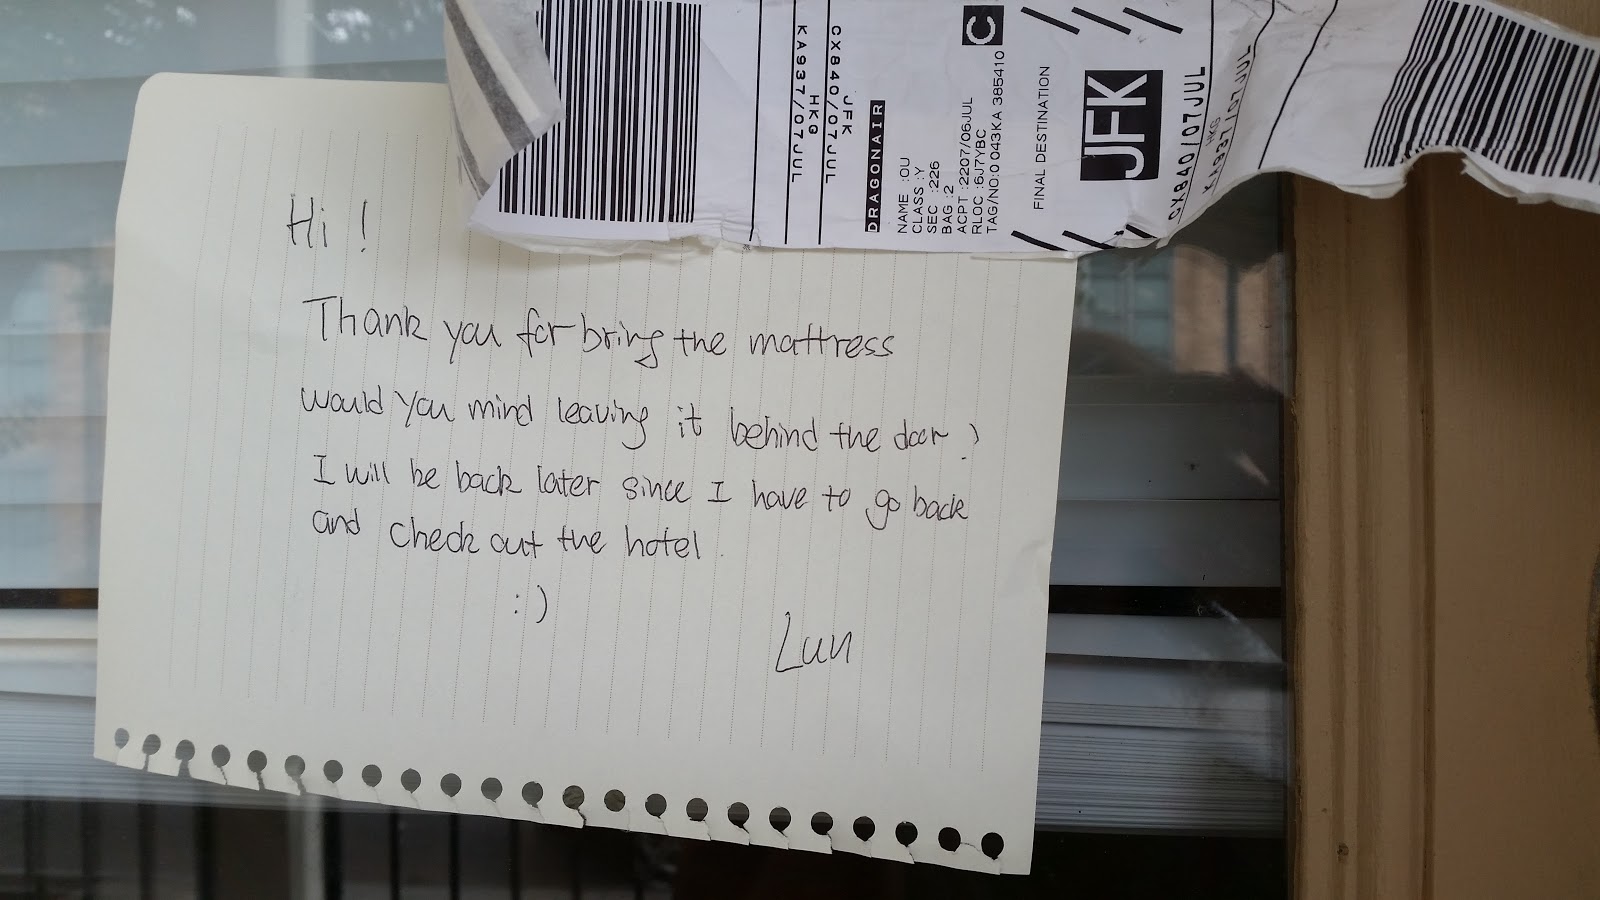 Hi !
Thank you for bring the mattress
would you mind leaving it behind the door ?
I will be back later since I have to go back
and check out the hotel.
:)
Lun
KA937/07JUL
HKG
CX840/07JUL
JFK
DRAGONAIR
NAME :OU
CLASS :Y
SEC :226
BAG :2
ACPT :2207/06JUL
RLOC :6J7YBC
TAG/NO:0 043KA 385410
C
FINAL DESTINATION
JFK
CX840/07JUL
HKG
KA937/07JUL